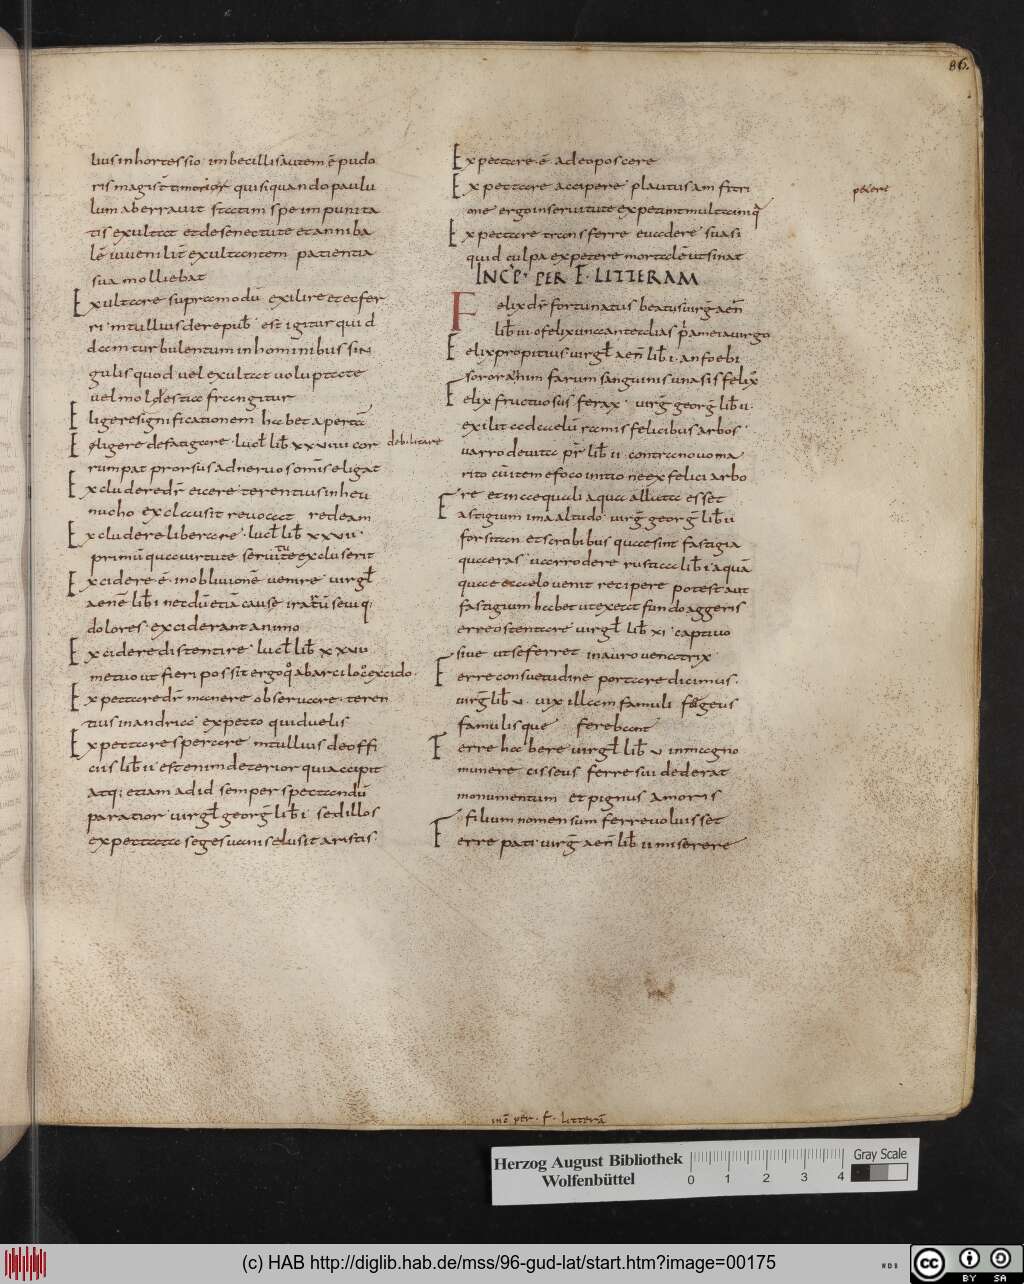 86.
lius inhortessio · inbecillis autem ē pudo
ris magist̄ timorior quisiquando paulu
lum aberrauit statim spe impunita
tis exultat et desenectute etanniba
lē iuuenilit̄ exultantem patientia
sua molliebat
Exultare supramodū exilire et ecfer
ri mtullius derepub̄ est igitur quid
dam turbulentum inhominibus sin
gulis quod uel exultat uoluptate
uel molestia frangitur
Eligere significationem habet aperta
Eeligere defatigare · lucł lib̄ xxviiii cor
debilitare
rumpat prorsus adneruos omīs eligat
Excludere dr̄ eicere terentius inheu
nucho exclausit reuocat redeam
Excludere liberare · lucł lib̄ xxvii
primū quauirtute seruitute excluserit
Excidere ē · inobliuionē uenire uirgł
aenē lib̄ i necdū etiā cause irarū seuiq;
dolores · exciderant animo
Excidere distentire lucł lib̄ xxvi
metuo ut fieri possit ergo abarcilo excido ·
Expectare dr̄ manere obseruare · teren
tius inandria expecto quiduelis
Expectare sperare mtullius deoffi
ciis lib̄ ii est enim deterior quiaccipit
atq; etiam ad id semper spectandū
paratior uirgł georḡ lib̄ i sedillos
expectata seges uanis elusit aristis ·
Expectare · ē adeoposcere
Expectare accipere plautus amfitri
petere
one ergo inseruitute expetunt multa iniq̄
Expectare transferre euadere suasi
quid culpa expetere mortalē ut sinat
INCP̄ · PER F · LITTERAM
Felix dr̄ fortunatus beatus uirḡ aen̄
lib̄ iii ofelix una anteralias p̄ameia uirgo
Felix propitius uirgł aen̄ lib̄ i · anfoebi
soror annim farum sanguinis una sis felix
Felix fructuosus ferax · uirḡ georḡ lib̄ ii ·
exilit ad caelū ramis felicibus arbos ·
uarro deuita pr̄ lib̄ ii · contranouo ma
rito cū item efoco initio ne ex felici arbo
re et inaequali aqua alluta esset
Fastigium ima altudo · uirḡ georḡ lib̄ ii
forsitan et scrobibus quae sint fastigia
quaeras uarro dere rustica lib̄ i aquā
quae ecaelo uenit recipere potest aut
fastigium habet ut exeat fundo aggeris
erre ostentare uirgł lib̄ xi · captiuo
siue ut se ferret inauro uenatrix
Ferre consuetudine portare dicimus ·
uirḡ lib̄ v · uix illam famuli fageus
famulisque ferebant
Ferre habere uirgł lib̄ v inmagno
munere cisseus ferre sui dederat
monumentum et pignus amoris
filium nomen suum ferre uoluisset
Ferre pati · uirḡ aen̄ lib̄ ii miserere
inc̄ per · F · litterā
Herzog August Bibliothek
Wolfenbüttel
0 1 2 3 4
Gray Scale
(c) HAB http://diglib.hab.de/mss/96-gud-lat/start.htm?image=00175
WDB
cc BY SA